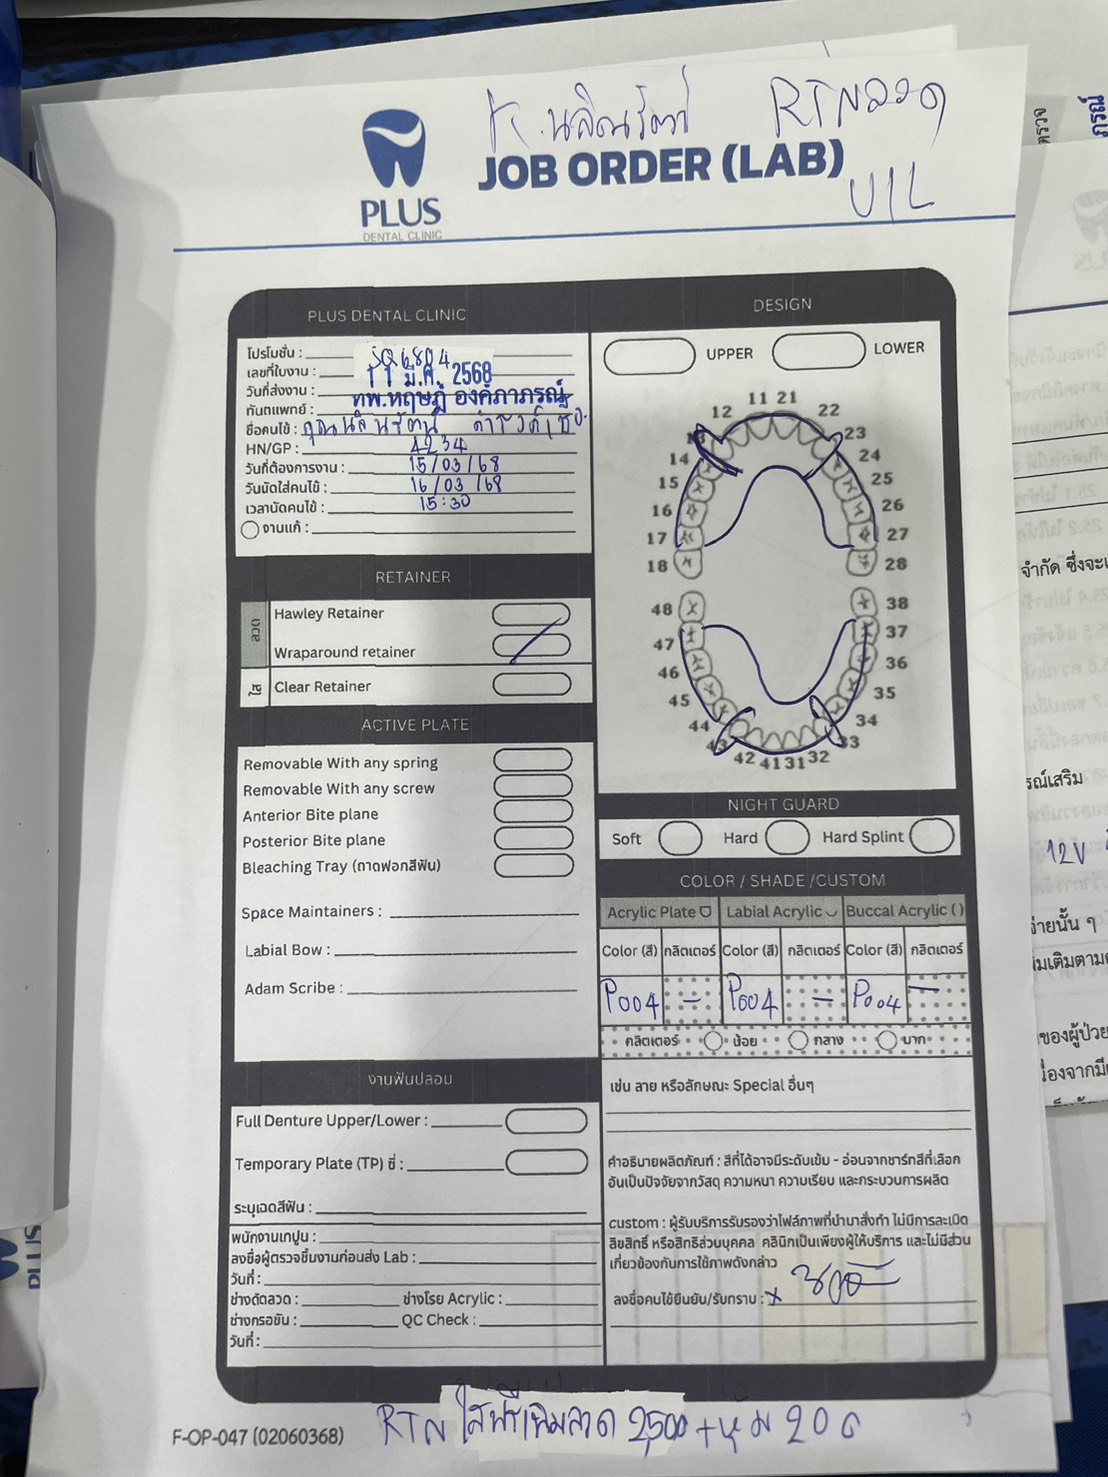 RTNลวด
U/L
PLUS
DENTAL CLINIC
JOB ORDER (LAB)
PLUS DENTAL CLINIC
โปรโมชั่น :
เลขที่ใบงาน : JQ6804
วันที่ส่งงาน : 11 มี.ค. 2568
ทันตแพทย์ : ทพ.หฤษฎ์ องค์ภาภรณ์
ชื่อคนไข้ : คุณ
HN/GP : 4234
วันที่ต้องการงาน : 15/03/68
วันนัดใส่คนไข้ : 16/03/68
เวลานัดคนไข้ : 15:30
งานแก้ :
RETAINER
ลวด
Hawley Retainer
Wraparound retainer
ใส
Clear Retainer
ACTIVE PLATE
Removable With any spring
Removable With any screw
Anterior Bite plane
Posterior Bite plane
Bleaching Tray (ถาดฟอกสีฟัน)
Space Maintainers :
Labial Bow :
Adam Scribe :
งานฟันปลอม
Full Denture Upper/Lower :
Temporary Plate (TP) ซี่ :
ระบุเฉดสีฟัน :
พนักงานเทปูน :
ลงชื่อผู้ตรวจชิ้นงานก่อนส่ง Lab :
วันที่ :
ช่างดัดลวด : ช่างโรย Acrylic :
ช่างกรอขัน : QC Check :
วันที่ :
DESIGN
UPPER LOWER
11 21
12 22
13 23
14 24
15 25
16 26
17 27
18 28
48 38
47 37
46 36
45 35
44 34
43 33
42 41 31 32
NIGHT GUARD
Soft Hard Hard Splint
COLOR / SHADE /CUSTOM
Acrylic Plate Labial Acrylic Buccal Acrylic ( )
Color (สี) กลิตเตอร์ Color (สี) กลิตเตอร์ Color (สี) กลิตเตอร์
P004 – P004 – P004 –
กลิตเตอร์ น้อย กลาง มาก
เช่น ลาย หรือลักษณะ Special อื่นๆ
คำอธิบายผลิตภัณฑ์ : สีที่ได้อาจมีระดับเข้ม - อ่อนจากชาร์ทสีที่เลือก
อันเป็นปัจจัยจากวัสดุ ความหนา ความเรียบ และกระบวนการผลิต
custom : ผู้รับบริการรับรองว่าไฟล์ภาพที่นำมาสั่งทำ ไม่มีการละเมิด
ลิขสิทธิ์ หรือสิทธิส่วนบุคคล คลินิกเป็นเพียงผู้ให้บริการ และไม่มีส่วน
เกี่ยวข้องกับการใช้ภาพดังกล่าว
ลงชื่อคนไข้ยืนยัน/รับทราบ : x
F-OP-047 (02060368)
RTN ใสฟรีเพิ่มลวด 2,500 + หุ้ม 200
ตรวจ
ภรณ์
จำกัด ซึ่งจะ
รณ์เสริม
12V
จ่ายนั้น ๆ
ของผู้ป่วย